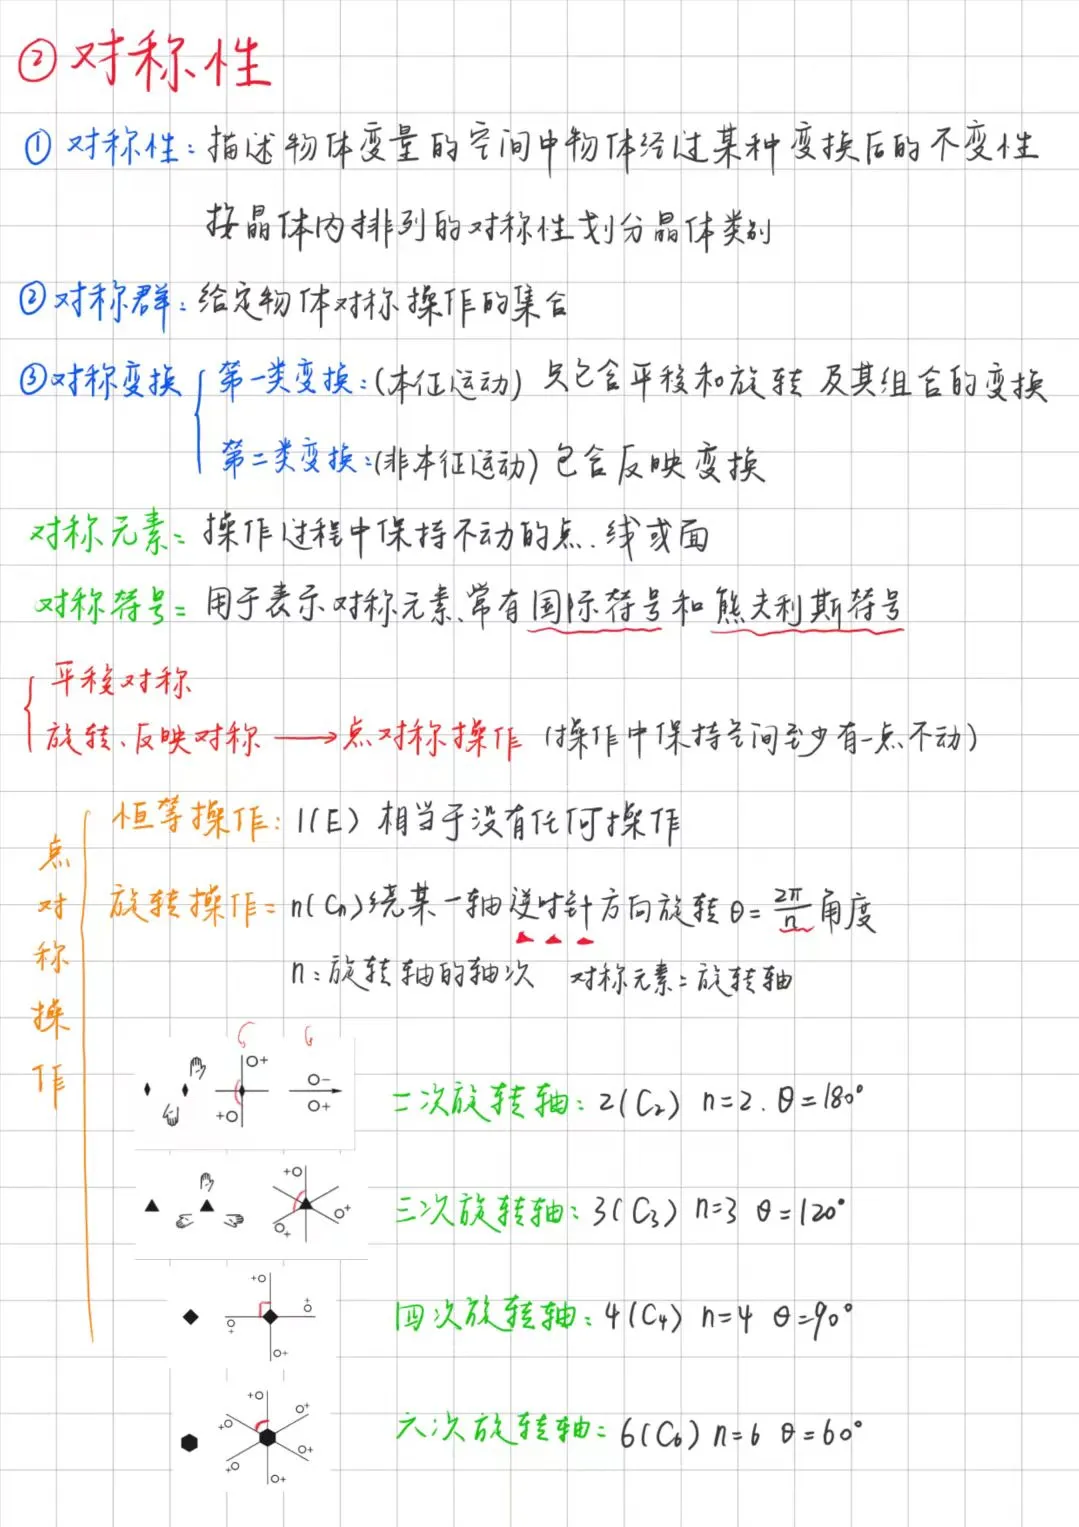 ② 对称性
① 对称性：描述物体变量的空间中物体经过某种变换后的不变性
按晶体内排列的对称性划分晶体类别
② 对称群：给定物体对称操作的集合
③ 对称变换 { 第一类变换：(本征运动) 只包含平移和旋转及其组合的变换
第二类变换：(非本征运动) 包含反映变换
对称元素：操作过程中保持不动的点、线或面
对称符号：用于表示对称元素、常有国际符号和熊夫利斯符号
{ 平移对称
旋转、反映对称 → 点对称操作 (操作中保持空间至少有一点不动)
点对称操作 { 恒等操作：1(E) 相当于没有任何操作
旋转操作：n(Cn) 绕某一轴逆时针方向旋转 θ=2π/n 角度
n：旋转轴的轴次 对称元素：旋转轴
二次旋转轴：2(C₂) n=2. θ=180°
三次旋转轴：3(C₃) n=3 θ=120°
四次旋转轴：4(C₄) n=4 θ=90°
六次旋转轴：6(C₆) n=6 θ=60°